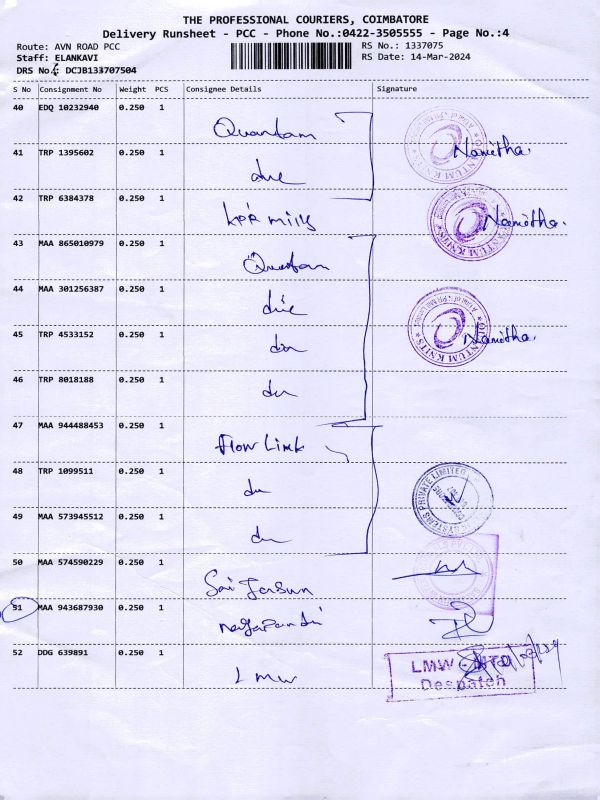 THE PROFESSIONAL COURIERS, COIMBATORE
Delivery Runsheet - PCC - Phone No.:0422-3505555 - Page No.:4
Route: AVN ROAD PCC
RS No.: 1337075
Staff: ELANKAVI
RS Date: 14-Mar-2024
DRS No.: DCJB133707504
S No Consignment No Weight PCS Consignee Details Signature
40 EDQ 10232940 0.250 1
Quantam
41 TRP 1395602 0.250 1 Namitha.
42 TRP 6384378 0.250 1
KPR mills Namitha.
43 MAA 865010979 0.250 1
Quantam
44 MAA 301256387 0.250 1
QUANTUM KNITS
45 TRP 4533152 0.250 1 Namitha.
46 TRP 8018188 0.250 1
47 MAA 944488453 0.250 1
Flow Link
48 TRP 1099511 0.250 1
SYSTEMS PRIVATE LIMITED
49 MAA 573945512 0.250 1
50 MAA 574590229 0.250 1
Sai
51 MAA 943687930 0.250 1
52 DDG 639891 0.250 1
LMW
LMW
Despatch